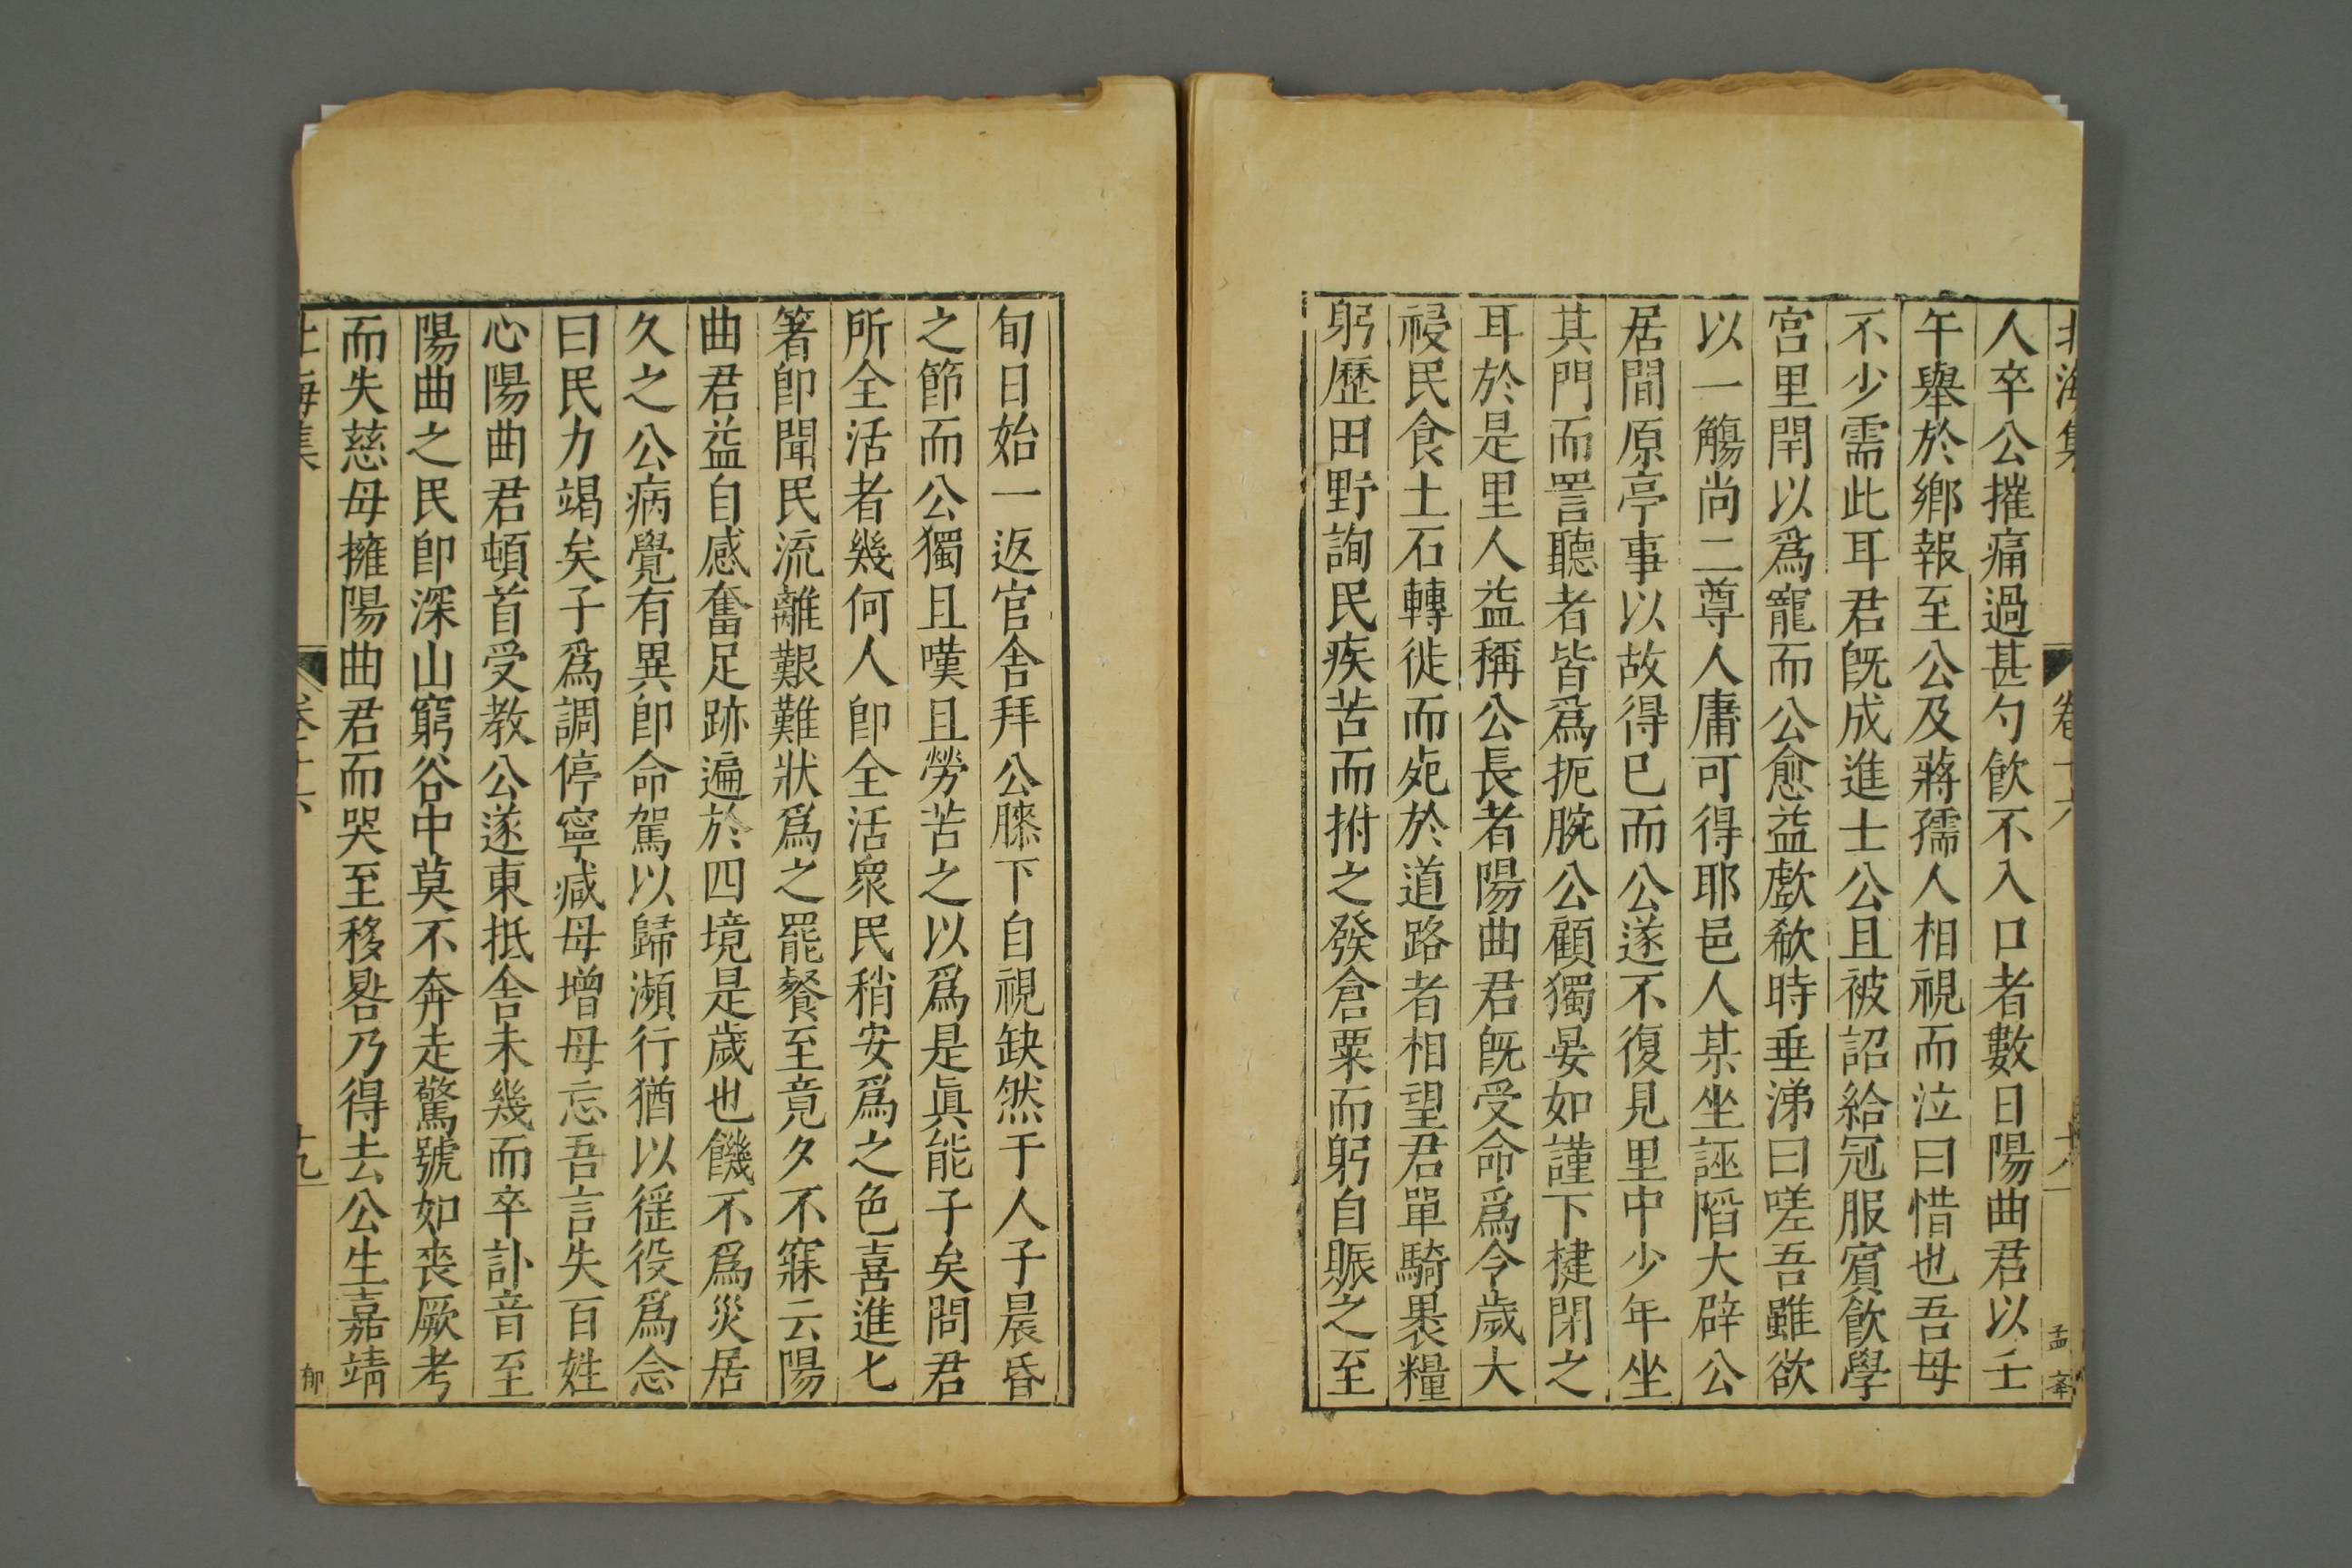 北海集 卷十六 十八 孟奉
人卒公摧痛過甚勺飲不入口者數日陽曲君以壬
午舉於鄉報至公及蔣孺人相視而泣曰惜也吾母
不少需此耳君旣成進士公且被詔給冠服賓飲學
宮里閈以爲寵而公愈益歔欷時垂涕曰嗟吾雖欲
以一觴尚二尊人庸可得耶邑人某坐誣陷大辟公
居間原亭事以故得已而公遂不復見里中少年坐
其門而詈聽者皆爲扼腕公顧獨晏如謹下揵閉之
耳於是里人益稱公長者陽曲君旣受命爲令歲大
祲民食土石轉徙而死於道路者相望君單騎褁糧
躬歷田野詢民疾苦而拊之發倉粟而躬自賑之至
旬日始一返官舍拜公膝下自視缺然于人子晨昏
之節而公獨且嘆且勞苦之以爲是眞能子矣問君
所全活者幾何人卽全活衆民稍安爲之色喜進匕
箸卽聞民流離艱難狀爲之罷餐至竟夕不寐云陽
曲君益自感奮足跡遍於四境是歲也饑不爲災居
久之公病覺有異卽命駕以歸瀕行猶以徭役爲念
曰民力竭矣子爲調停寧减毋增毋忘吾言失百姓
心陽曲君頓首受教公遂東抵舍未幾而卒訃音至
陽曲之民卽深山窮谷中莫不奔走驚號如喪厥考
而失慈母擁陽曲君而哭至移晷乃得去公生嘉靖
北海集 卷十六 十九 郁